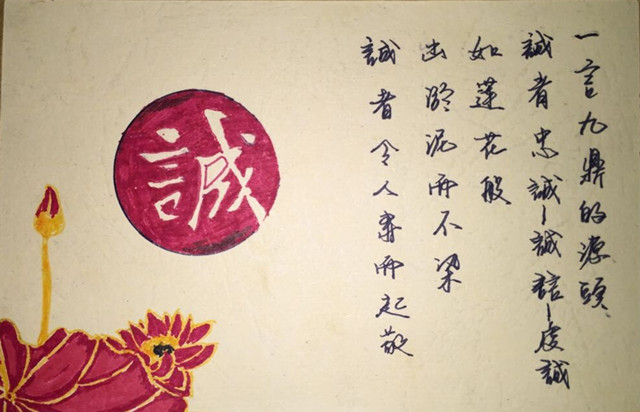 一言九鼎的源頭
誠者忠誠-誠-虔誠
如蓮花般
出淤泥而不染
誠者令人肅而起敬
誠